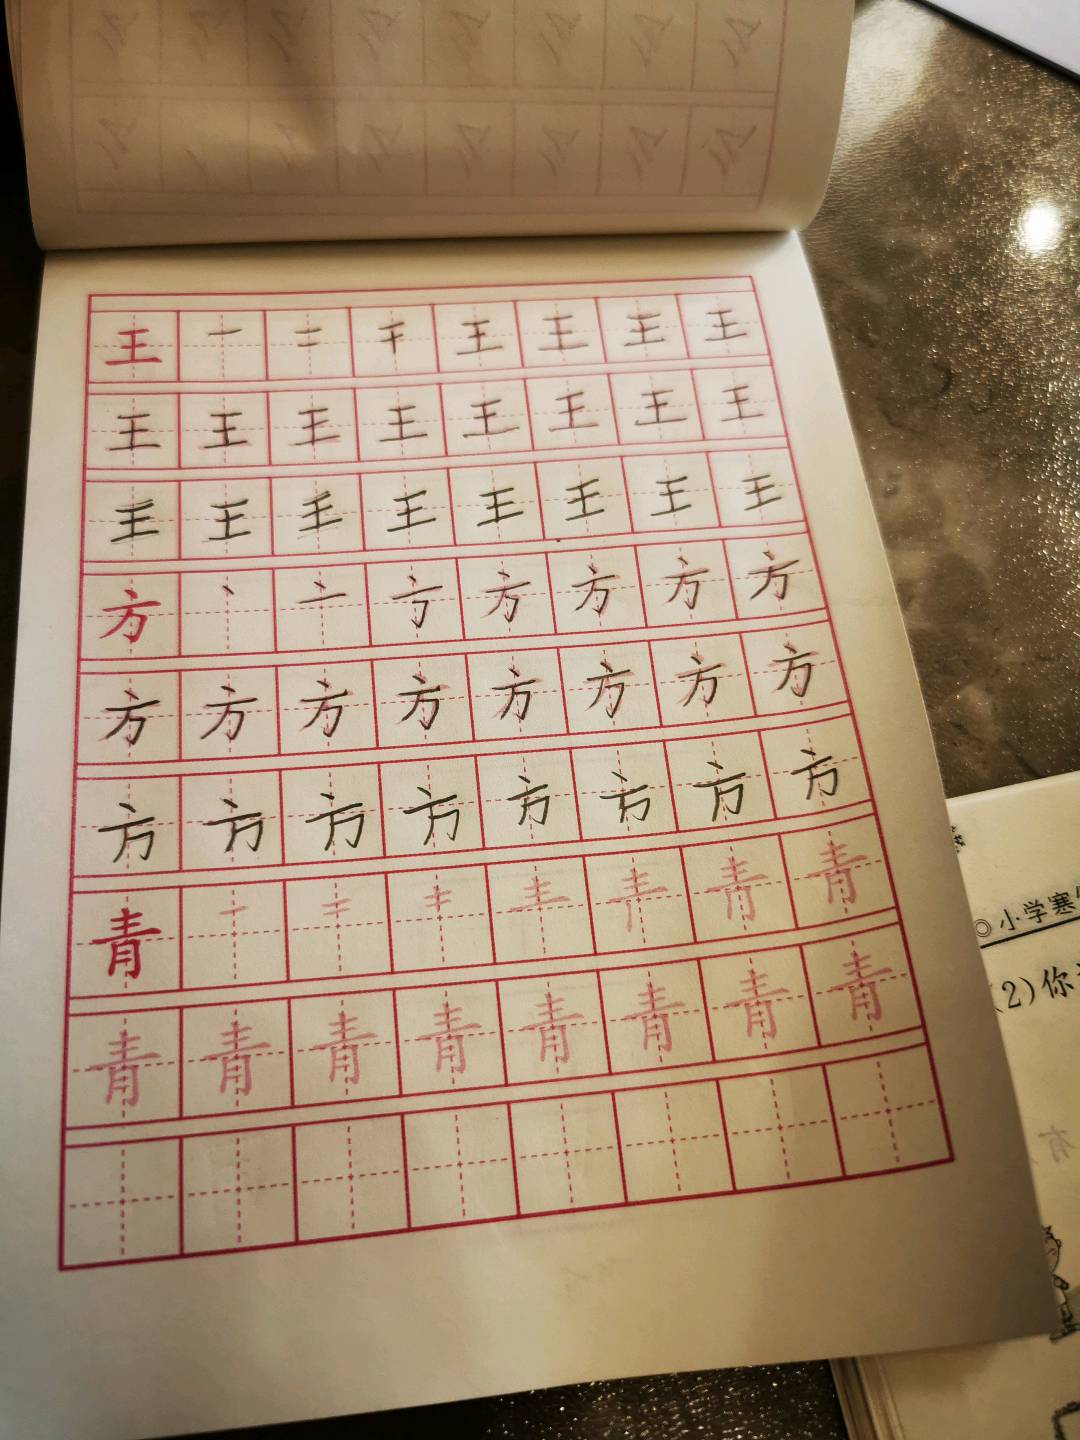 王 一 二 干 王 王 王 王
王 王 王 王 王 王 王 王
王 王 王 王 王 王 王 王
方 丶 亠 方 方 方 方
方 方 方 方 方 方 方 方
方 方 方 方 方 方 方 方
青 一 二 龶 青 青
青 青 青 青 青 青 青 青
◎小学寒
(2)你
有